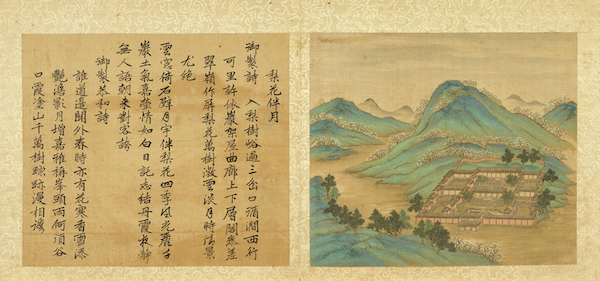 梨花伴月
御製詩 入梨樹峪過三岔口循澗西行
可里許依巖架屋曲廊上下層閣參差
翠嶺作屏梨花萬樹微雲淡月時清景
尤絕
雲窗倚石壁月宇伴梨花四季風光麗千
巖土氣嘉瑩情如白日託志結丹霞夜靜
無人語朝來對客誇
御製恭和詩
誰道邊關外春時亦有花寒香雪添
艷影月增嘉雅稱峯頭雨何須谷
口霞塗山千萬樹踪跡漫相誇